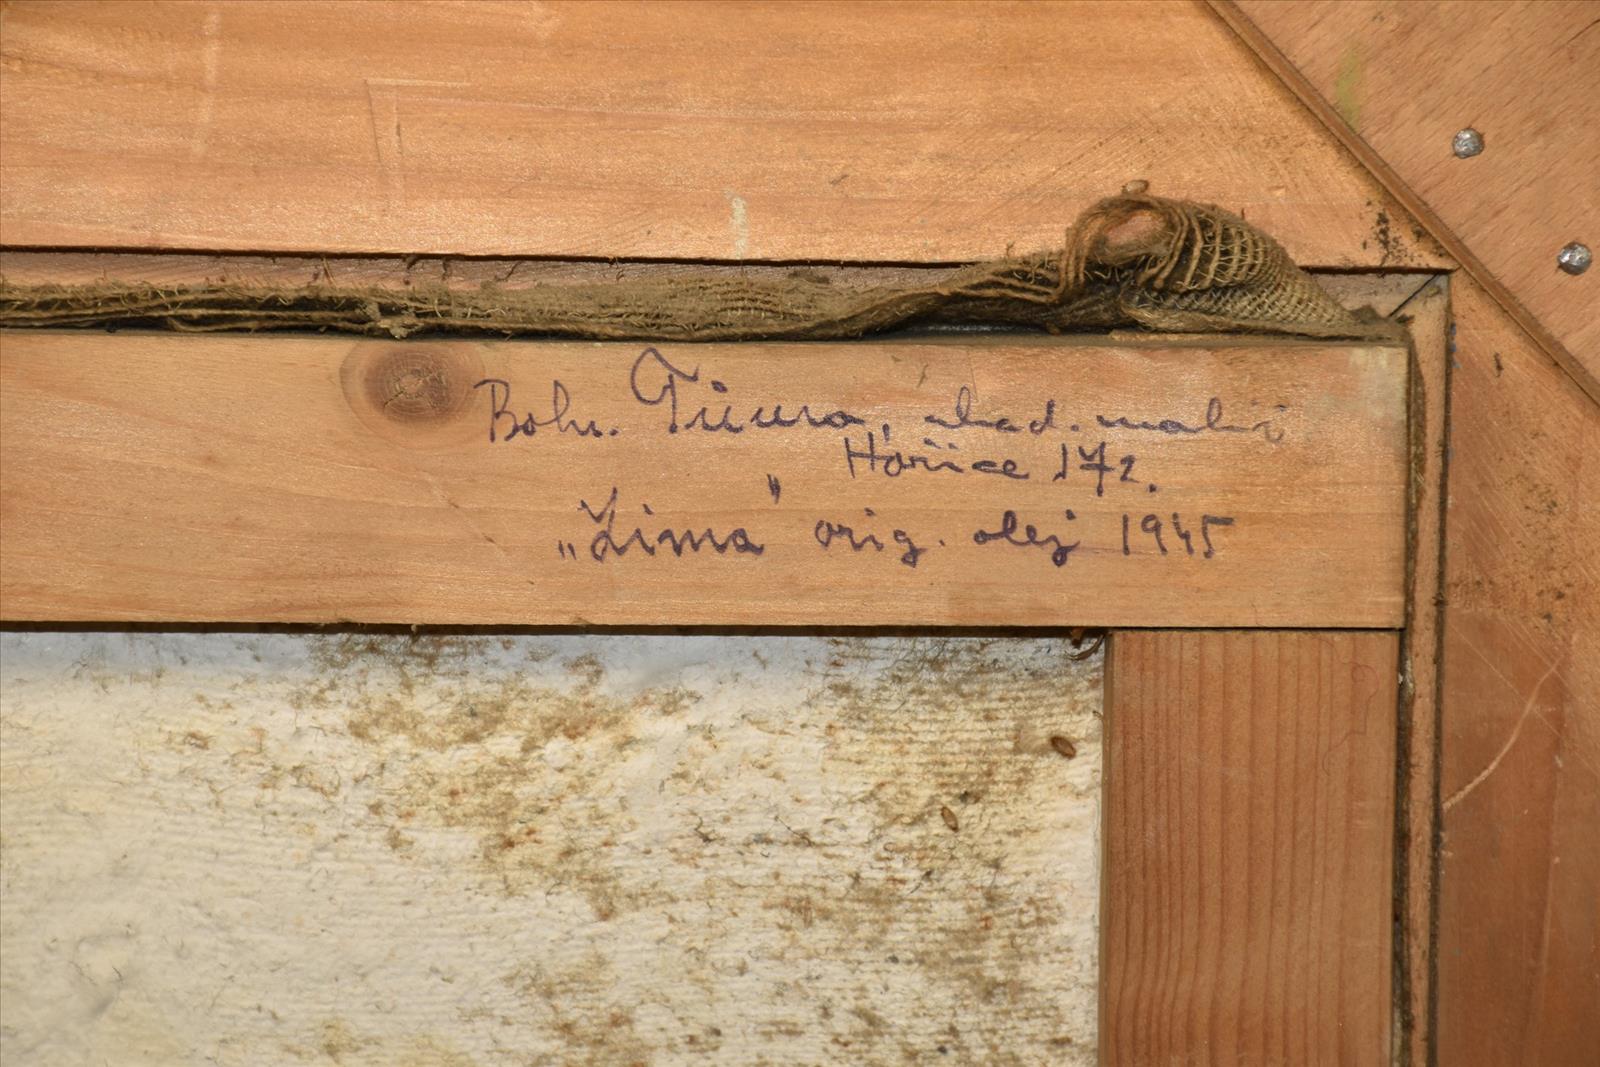 Bohu. Tůma, akad. malíř
Hořice 172.
„Zima" orig. olej 1945